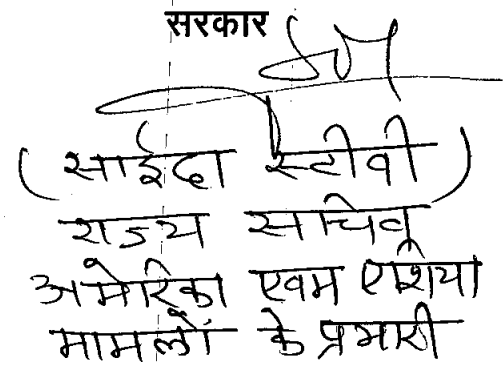 सरकार
(साईदा स्टीवी)
राज्य सचिव
अमेरिका एवम एशिया
मामलों के प्रभारी